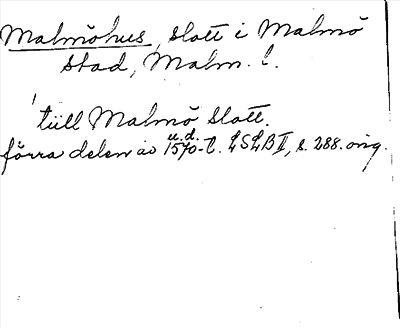 Malmöhus, slott i Malmö
stad, Malm. l.
till Malmö Slott.
u.d.
förra delen av 1570-t. LSLB II, s. 288. orig.